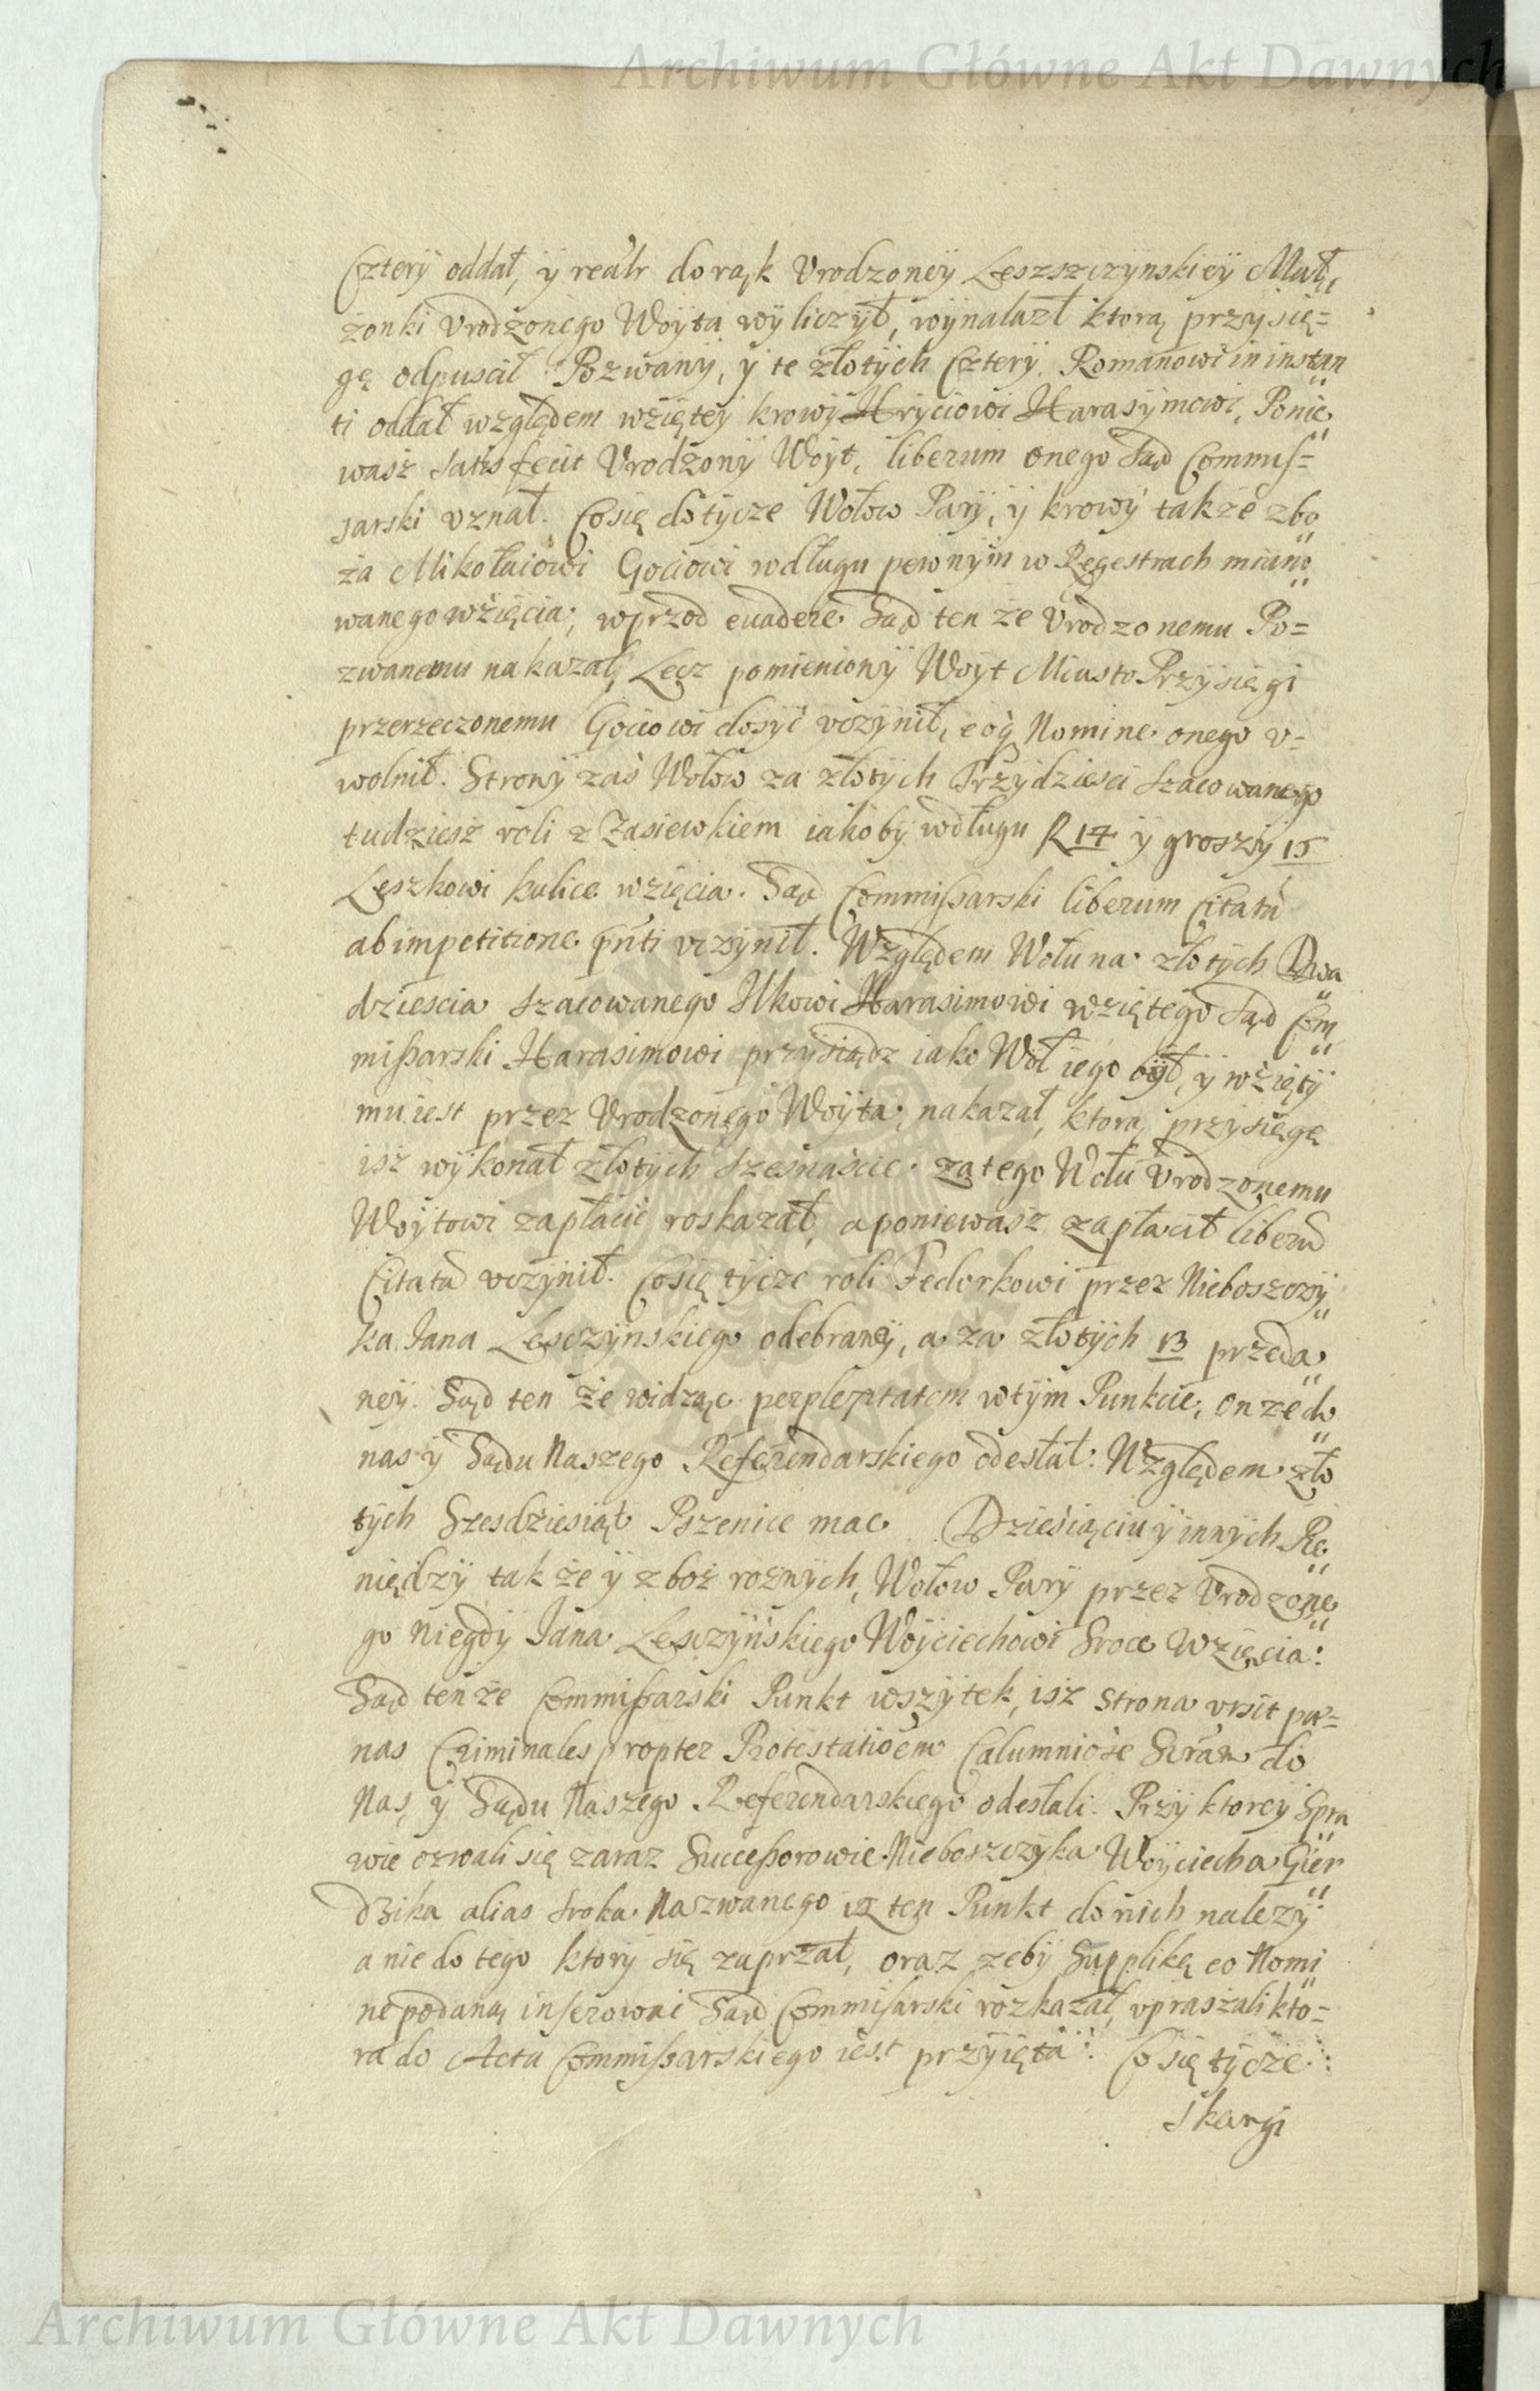 Archiwum Główne Akt Dawnych
Cztery oddał, y realr do rąk Vrodzoney Leszszczynskiey Mał„
żonki Vrodzonego Woyta wyliczył, wynalazł ktorą przysię=
gę odpuscił Pozwany, y te złotych Cztery Romanowi in instan„
ti oddał względem wziętey krowy Hryciowi Harasymowi, Ponie„
wasz satisfecit Vrodzony Woyt, liberum onego Sąd Commis=
sarski vznał. Co się dotycze Wołow Pary, y krowy także zbo„
ża Mikołaiowi Gociowi w długu pewnym w Regestrach miano„
wanego wzięcia; wprzod euadere Sąd ten że Vrodzonemu Po=
zwanemu nakazał, Lecz pomieniony Woyt Miasto Przysięgi
przerzeczonemu Gociowi dosyć vczynił, eoq Nomine onego v=
wolnił. Strony zaś Wołow za złotych Trzydziesci szacowanego
tudziesz roli z Zasiewkiem iakoby w długu R 14 y groszy 15
Leszkowi kulice wzięcia. Sąd Commissarski liberum Citatū
ab impetitione pnti vczynił. Względem Wołu na złotych Dwa„
dziescia szacowanego Ilkowi Harasimowi wziętego Sąd Com„
missarski Harasimowi przysiądz iako Woł iego był, y wzięty
mu iest przez Vrodzonego Woyta, nakazał, ktorą przysięgę
isz wykonał złotych szesnascie za tego Wołu Vrodzonemu
Woytowi zapłacić roskazał, a poniewasz zapłacił liberū
Citatū vczynił. Co się tycze roli Fedorkowi przez Nieboszczy„
ka Jana Lesczynskiego odebraney, a za złotych 13 przeda„
ney. Sąd ten że widząc perplexitatem w tym Punkcie, onże do„
nas y Sądu Naszego Referendarskiego odesłał: Względem zło„
tych Szesdziesiąt Pszenice mac Dziesiąciu y innych Pie„
niędzy tak że y zboż roznych, Wołow Pary przez Vrodzone„
go niegdy Jana Lesczyńskiego Woyciechowi Sroce Wzięcia:
Sąd tenże Commissarski Punkt wszytek, isz strona vrsit pæ=
nas Criminales propter Protestatioēm Calumniose do
Nas, y Sądu Naszego Referendarskiego odesłali. Przy ktorey Spra„
wie ozwali się zaraz Successorowie Nieboszczyka Woyciecha Gier„
dzika alias sroka Nazwanego iz ten Punkt do nich nalezy
a nie do tego ktory się zaprzał, oraz zeby Supplikę eo Nomi„
ne podaną inserowac Sąd Commissarski rozkazał, vpraszali kto=
ra do Acta Commissarskiego iest przyięta: Co się tycze:
skargi
Archiwum Główne Akt Dawnych